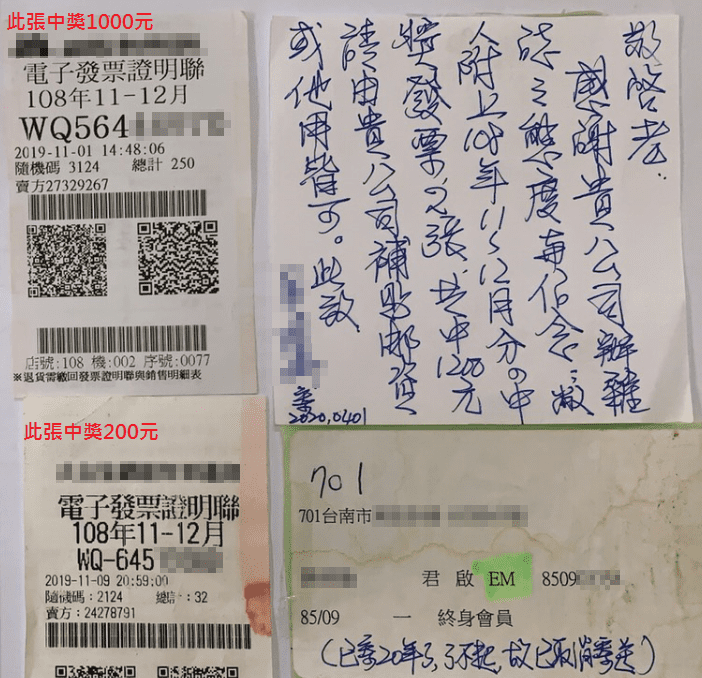 此張中獎1000元
電子發票證明聯
108年11-12月
WQ564
2019-11-01 14:48:06
隨機碼 3124 總計 250
賣方27329267
店號:108 機:002 序號:0077
※退貨需繳回發票證明聯與銷售明細表
此張中獎200元
電子發票證明聯
108年11-12月
WQ-645
2019-11-09 20:59:00
隨機碼:2124 總計:32
賣方:24278791
敬啓者.
感謝貴公司辦雜
誌之態度
附上108年11~12月分の中
獎發票2張共中1200元
請由貴公司補貼郵資
或他用皆可。此致
2020,0401
701
701台南市
君 啟 EM 8509
85/09 一 終身會員
(已寄20年了,了不起,故已取消寄送)